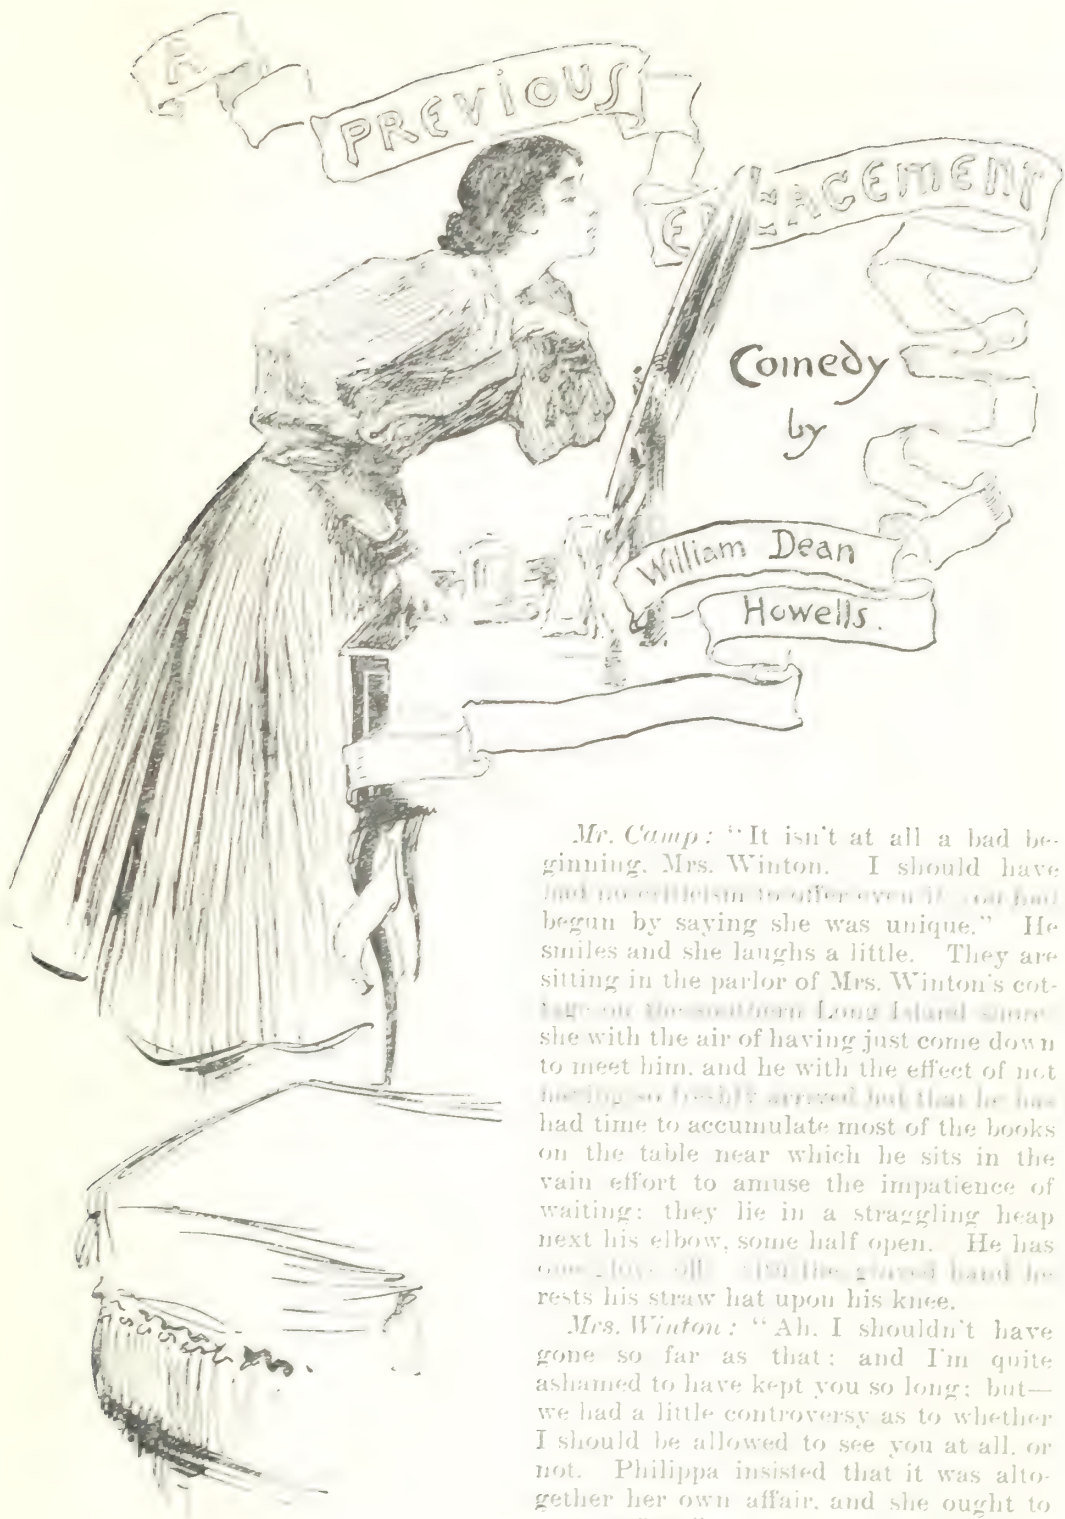 A
PREVIOUS
ENGAGEMENT
Comedy
by
William Dean
Howells.
Mr. Camp: "It isn't at all a bad be-
ginning, Mrs. Winton. I should have
had no criticism to offer even if you had
begun by saying she was unique." He
smiles and she laughs a little. They are
sitting in the parlor of Mrs. Winton's cot-
tage on the southern Long Island shore,
she with the air of having just come down
to meet him, and he with the effect of not
having so freshly arrived but that he has
had time to accumulate most of the books
on the table near which he sits in the
vain effort to amuse the impatience of
waiting: they lie in a straggling heap
next his elbow, some half open. He has
one glove off; the gloved hand he
rests his straw hat upon his knee.
Mrs. Winton: "Ah, I shouldn't have
gone so far as that: and I'm quite
ashamed to have kept you so long; but—
we had a little controversy as to whether
I should be allowed to see you at all, or
not. Philippa insisted that it was alto-
gether her own affair, and she ought to